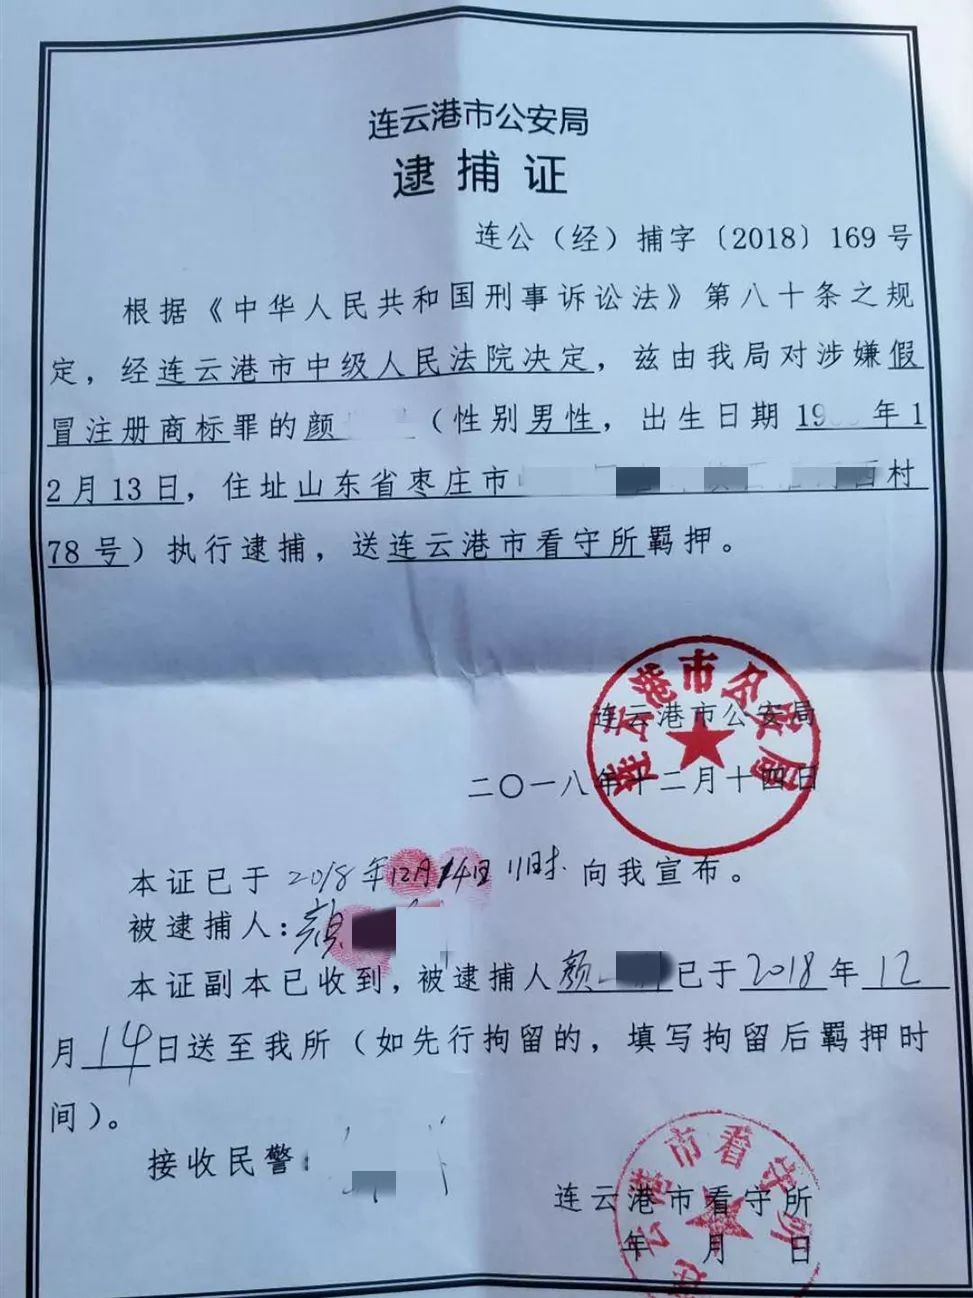 连云港市公安局
逮捕证
连公（经）捕字〔2018〕169号
根据《中华人民共和国刑事诉讼法》第八十条之规
定，经连云港市中级人民法院决定，兹由我局对涉嫌假
冒注册商标罪的颜（性别男性，出生日期19 年1
2月13日，住址山东省枣庄市 村
78号）执行逮捕，送连云港市看守所羁押。
连云港市公安局
连云港市公安局
二〇一八年十二月十四日
本证已于2018年12月14日11时向我宣布。
被逮捕人：颜
本证副本已收到，被逮捕人颜 已于2018年12
月14日送至我所（如先行拘留的，填写拘留后羁押时
间）。
接收民警：
市看守所
连云港市看守所
年 月 日